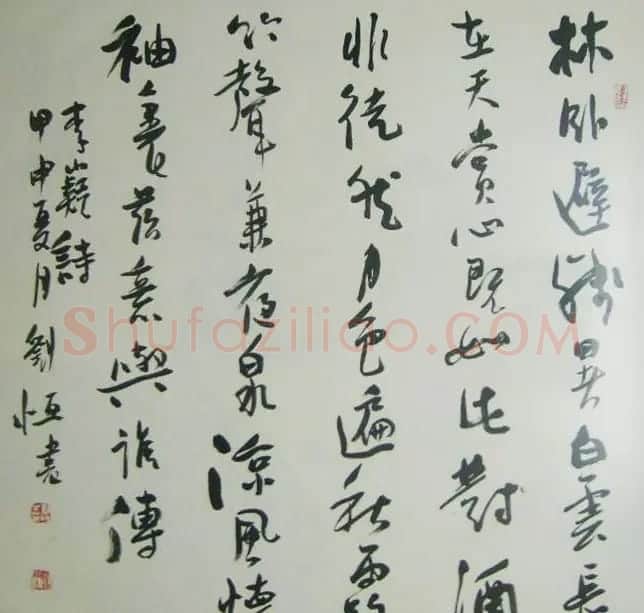 林卧避殘暑白雲長
在天賞心既如此對酒
非徒然月色遍秋露
竹聲兼夜泉涼風懷
袖裏茲意與誰傳
李嶷詩
甲申夏月劉恒書
Shufaziliao.COM